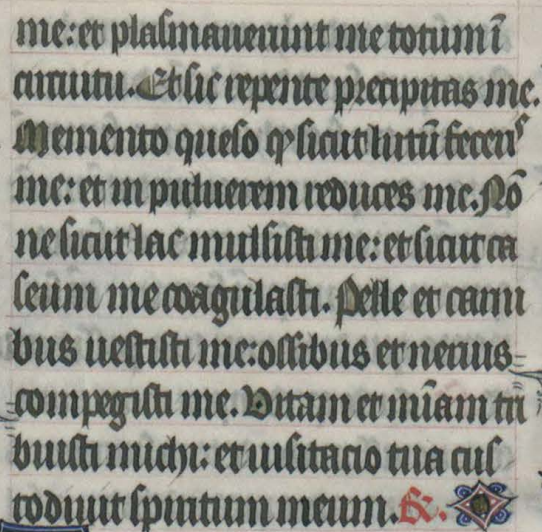 me: et plasmauerunt me totum ī
circuitu. Et sic repente precipitas me.
Memento queso qͥ sicut lutū feceris
me: et in puluerem reduces me. Nō
ne sicut lac mulsisti me: et sicut ca
seum me coagulasti. Pelle et carni
bus uestisti me: ossibus et neruis
compegisti me. Vitam et mīam tri
buisti michi: et uisitacio tua cus
todiuit spiritum meum. R.